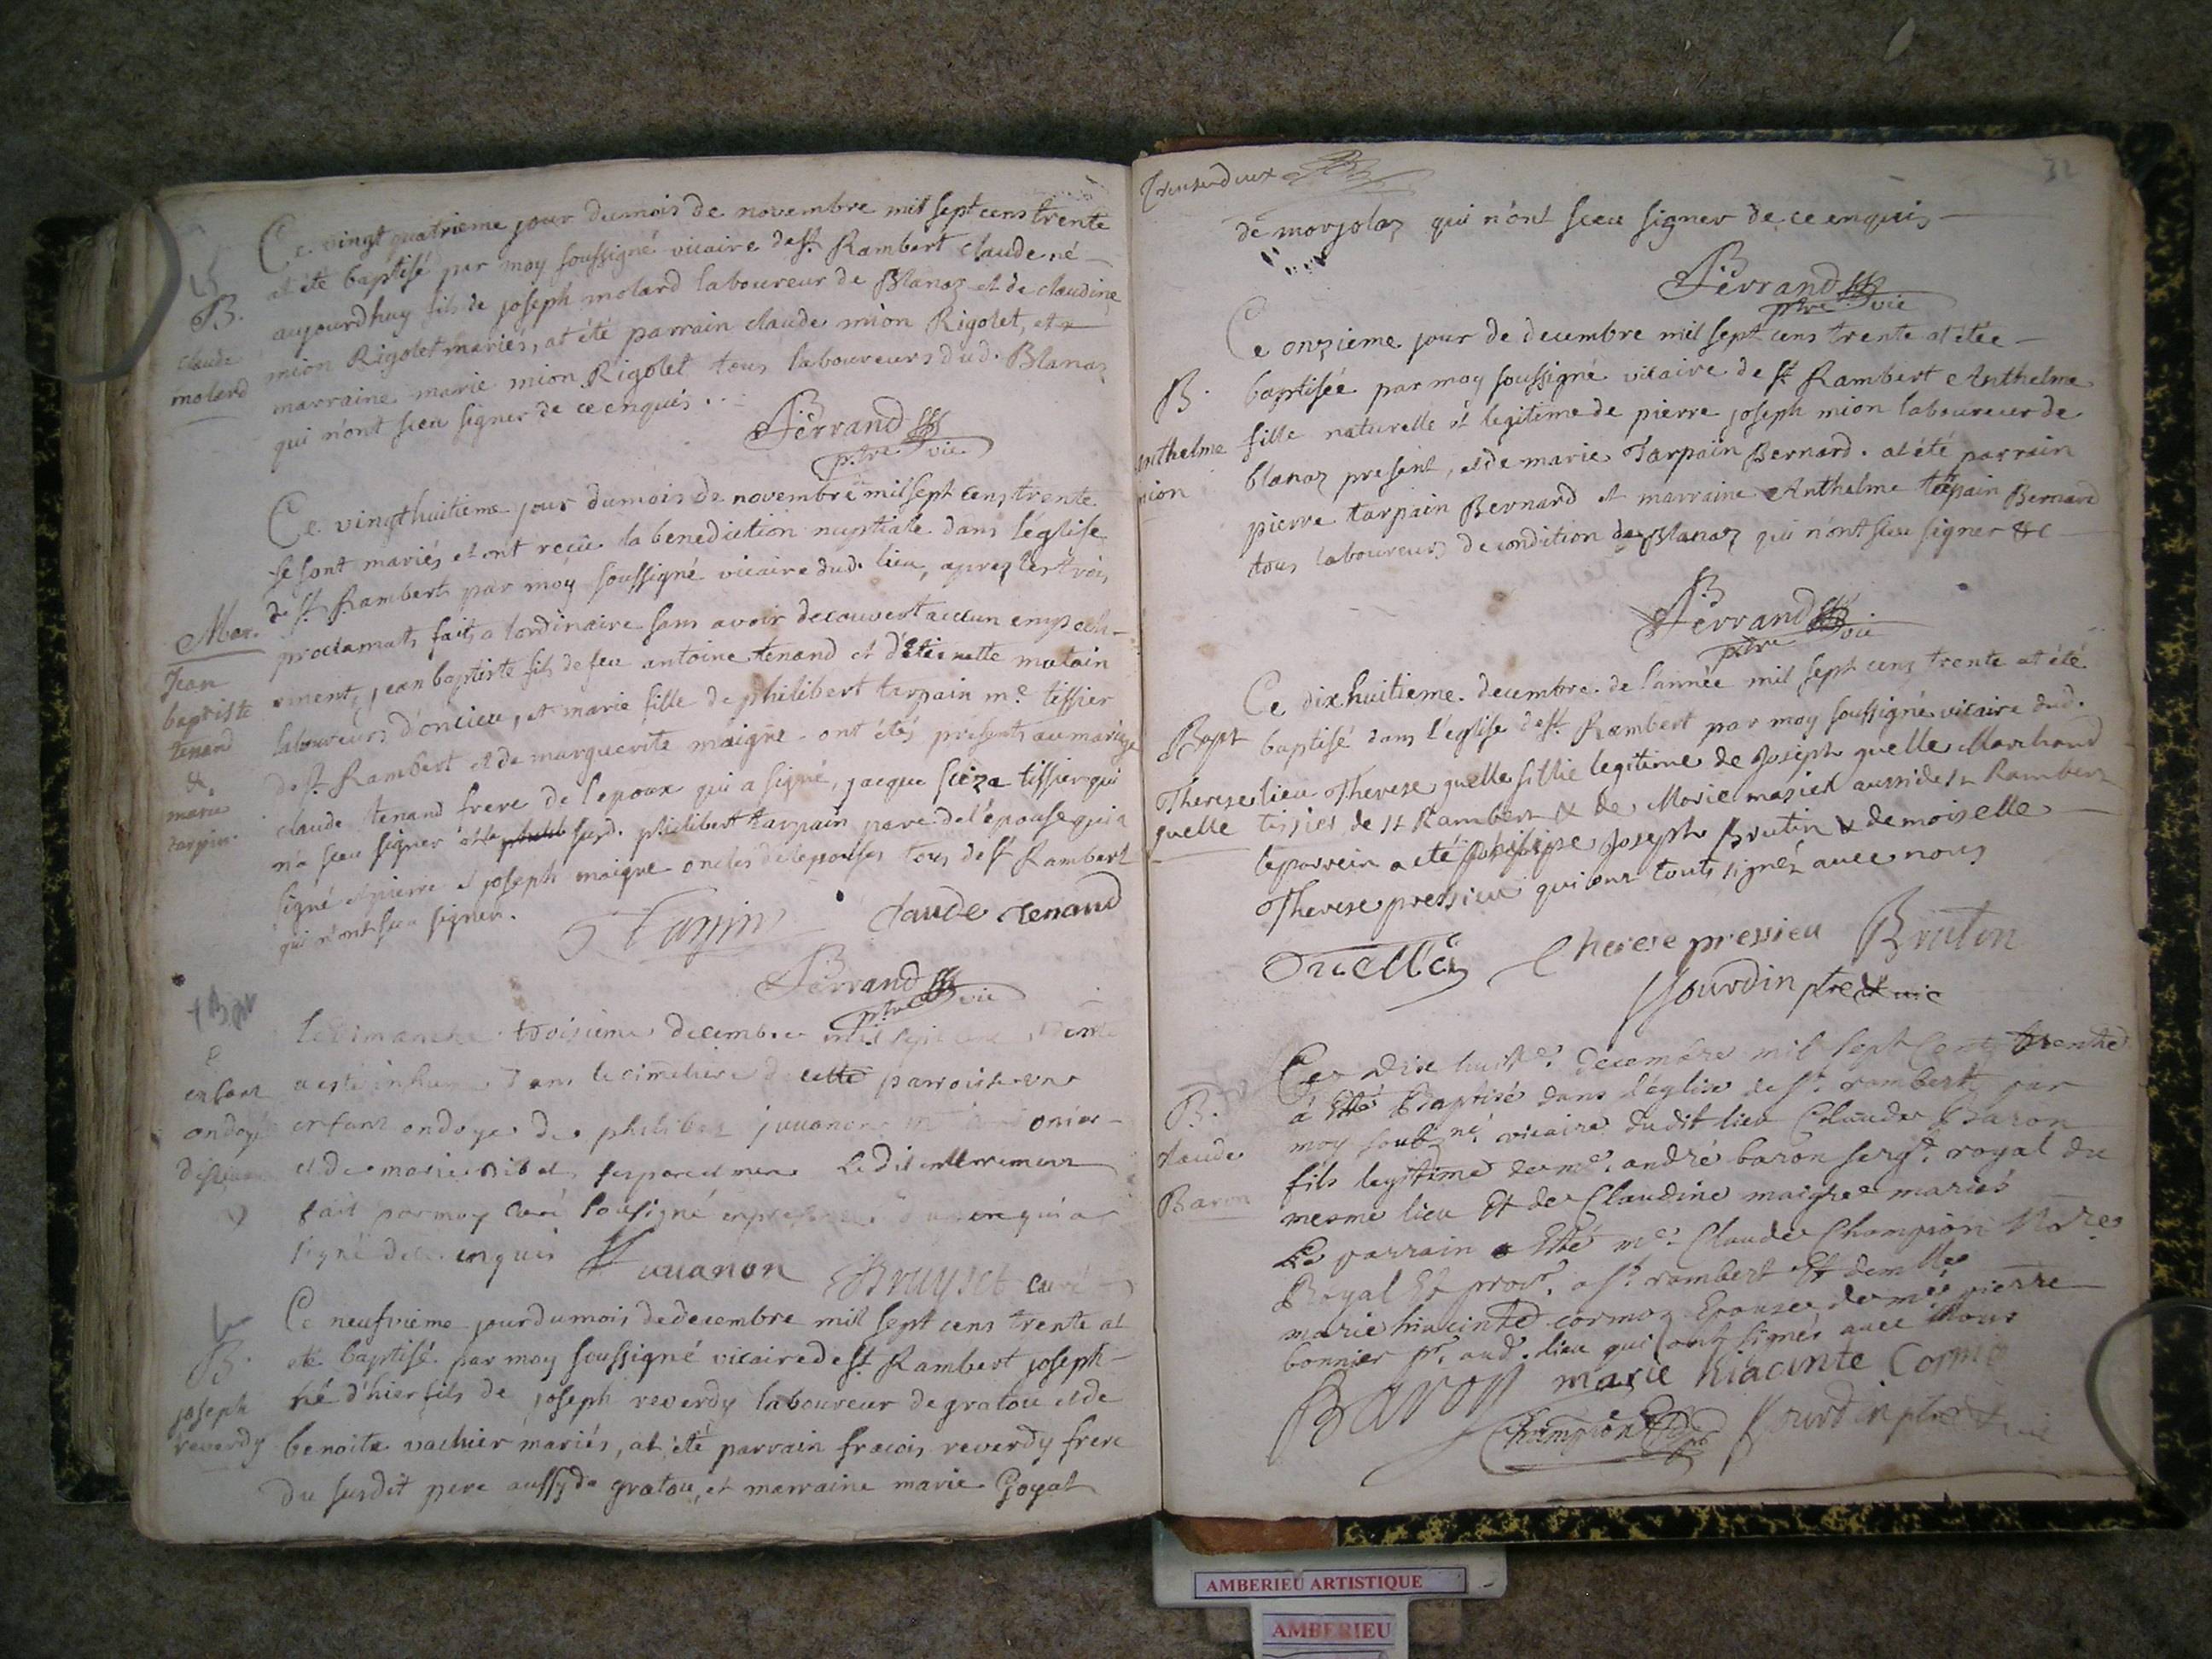 B.
claude
molard
Ce vingt quatrieme jour du mois de novembre mil sept cens trente
at été baptisé par moy soussigné vicaire de st. Rambert claude né
aujourdhuy fils de joseph molard laboureur de Blanaz et de claudine
mion Rigolet mariés, at été parrain claude mion Rigolet, et
marraine marie mion Rigolet tous laboureurs dud. Blanaz
qui n'ont sceu signer de ce enquis.
Ferrand
ptre vic
Mar.
Jean
baptiste
tenand
&
marie
tarpin.
Ce vingt huitieme jour du mois de novembre mil sept cens trente
se sont mariés et ont reçu la benediction nuptiale dans l'église
de st. Rambert par moy soussigné vicaire dud. lieu, aprez les trois
proclamats faits a l'ordinaire sans avoir decouvert aucun empech-
ement, jean baptiste fils de feu antoine tenand et d'étiennette mutain
laboureurs d'oncieu, et marie fille de philibert tarpain me. tissier
de st. Rambert et de marguerite maigre. ont étés présents au mariage
claude tenand frere de l'epoux qui a signé, jacque sieza tissier qui
n'a sceu signer et le susd. philibert tarpain pere de l'épouse qui a
signé et pierre et joseph maigre oncles de l'epouse tous de st. Rambert
qui n'ont sceu signer.
Tarpin claude tenand
Ferrand
ptre vic
enfant
ondoyé
Le dimanche troisieme decembre mil sept cens trente
a esté inhumé dans le cimetiere de cette parroisse un
enfant ondoyé de philibert juuanon
et de marie ses pere et mere Ledit enterrement
fait par moy curé sousigné en presence du pere qui a
signé de ce enquis
Juuanon Bruyset curé
B.
joseph
reverdy
Ce neufvieme jour du mois de decembre mil sept cens trente at
été baptisé par moy soussigné vicaire de st. Rambert joseph
né d'hier fils de joseph reverdy laboureur de gratou et de
benoite vachier mariés, at été parrain fracois reverdy frere
du susdit pere aussy de gratou, et marraine marie Goyat
Trentedeux
32
de morgolaz qui n'ont sceu signer de ce enquis
Ferrand
ptre vic
B.
Anthelme
mion
Ce onzieme jour de decembre mil sept cens trente at étée
baptisée par moy soussigné vicaire de st Rambert Anthelme
fille naturelle et legitime de pierre joseph mion laboureur de
blanaz present, et de marie Tarpain Bernard. at été parrain
pierre tarpain Bernard et marraine Anthelme tarpain Bernard
tous laboureurs de condition de Blanaz qui n'ont sceu signer &c
Ferrand
ptre vic
Bapt
Therese
quelle
Ce dixhuitieme decembre de l'année mil sept cens trente at été
baptisé dans l'église de st. Rambert par moy soussigné vicaire dud.
lieu Therese quelle fillie legitime de Joseph quelle Marchand
tissier de st Rambert & de Marie masiex aussi de st Rambert
le parrein a été philippe Joseph Brutin & demoiselle
Therese pressieu qui ont touts signéz avec nous
Quelle Therese pressieu Brutin
Jourdin ptre & vic
B.
claude
Baron
Ce Dix huite. decembre mil sept cent trente
à Etté Baptisé dans l'église de st. rambert par
moy soubné. vicaire dudit lieu Claude Baron
fils legitime de me. andré baron sergt. royal du
mesme lieu Et de Claudine maigre mariés
Le parrain a Etté me. Claude Champion Nore.
Royal Et procr. a st. rambert Et demlle
marie hiacinte cormoz Epouse de me. pierre
bonnier pr. aud. lieu qui ont signés avec Nous
Baron marie hiacinte Cormo
Champion Jourdin ptre & vic
AMBERIEU ARTISTIQUE
AMBERIEU